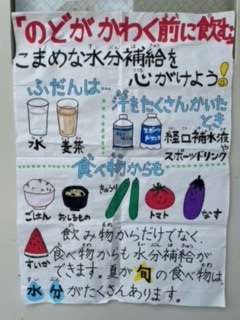 「のどが かわく前に飲む」
こまめな水分補給を
心がけよう!
ふだんは…
汗をたくさんかいたとき
水 麦茶
経口補水液
スポーツドリンク
食べ物からも
ごはん おしるもの きゅうり トマト なす
すいか
飲み物からだけでなく
食べ物からも水分補給が
できます。夏が旬の食べ物は
水分がたくさんあります。